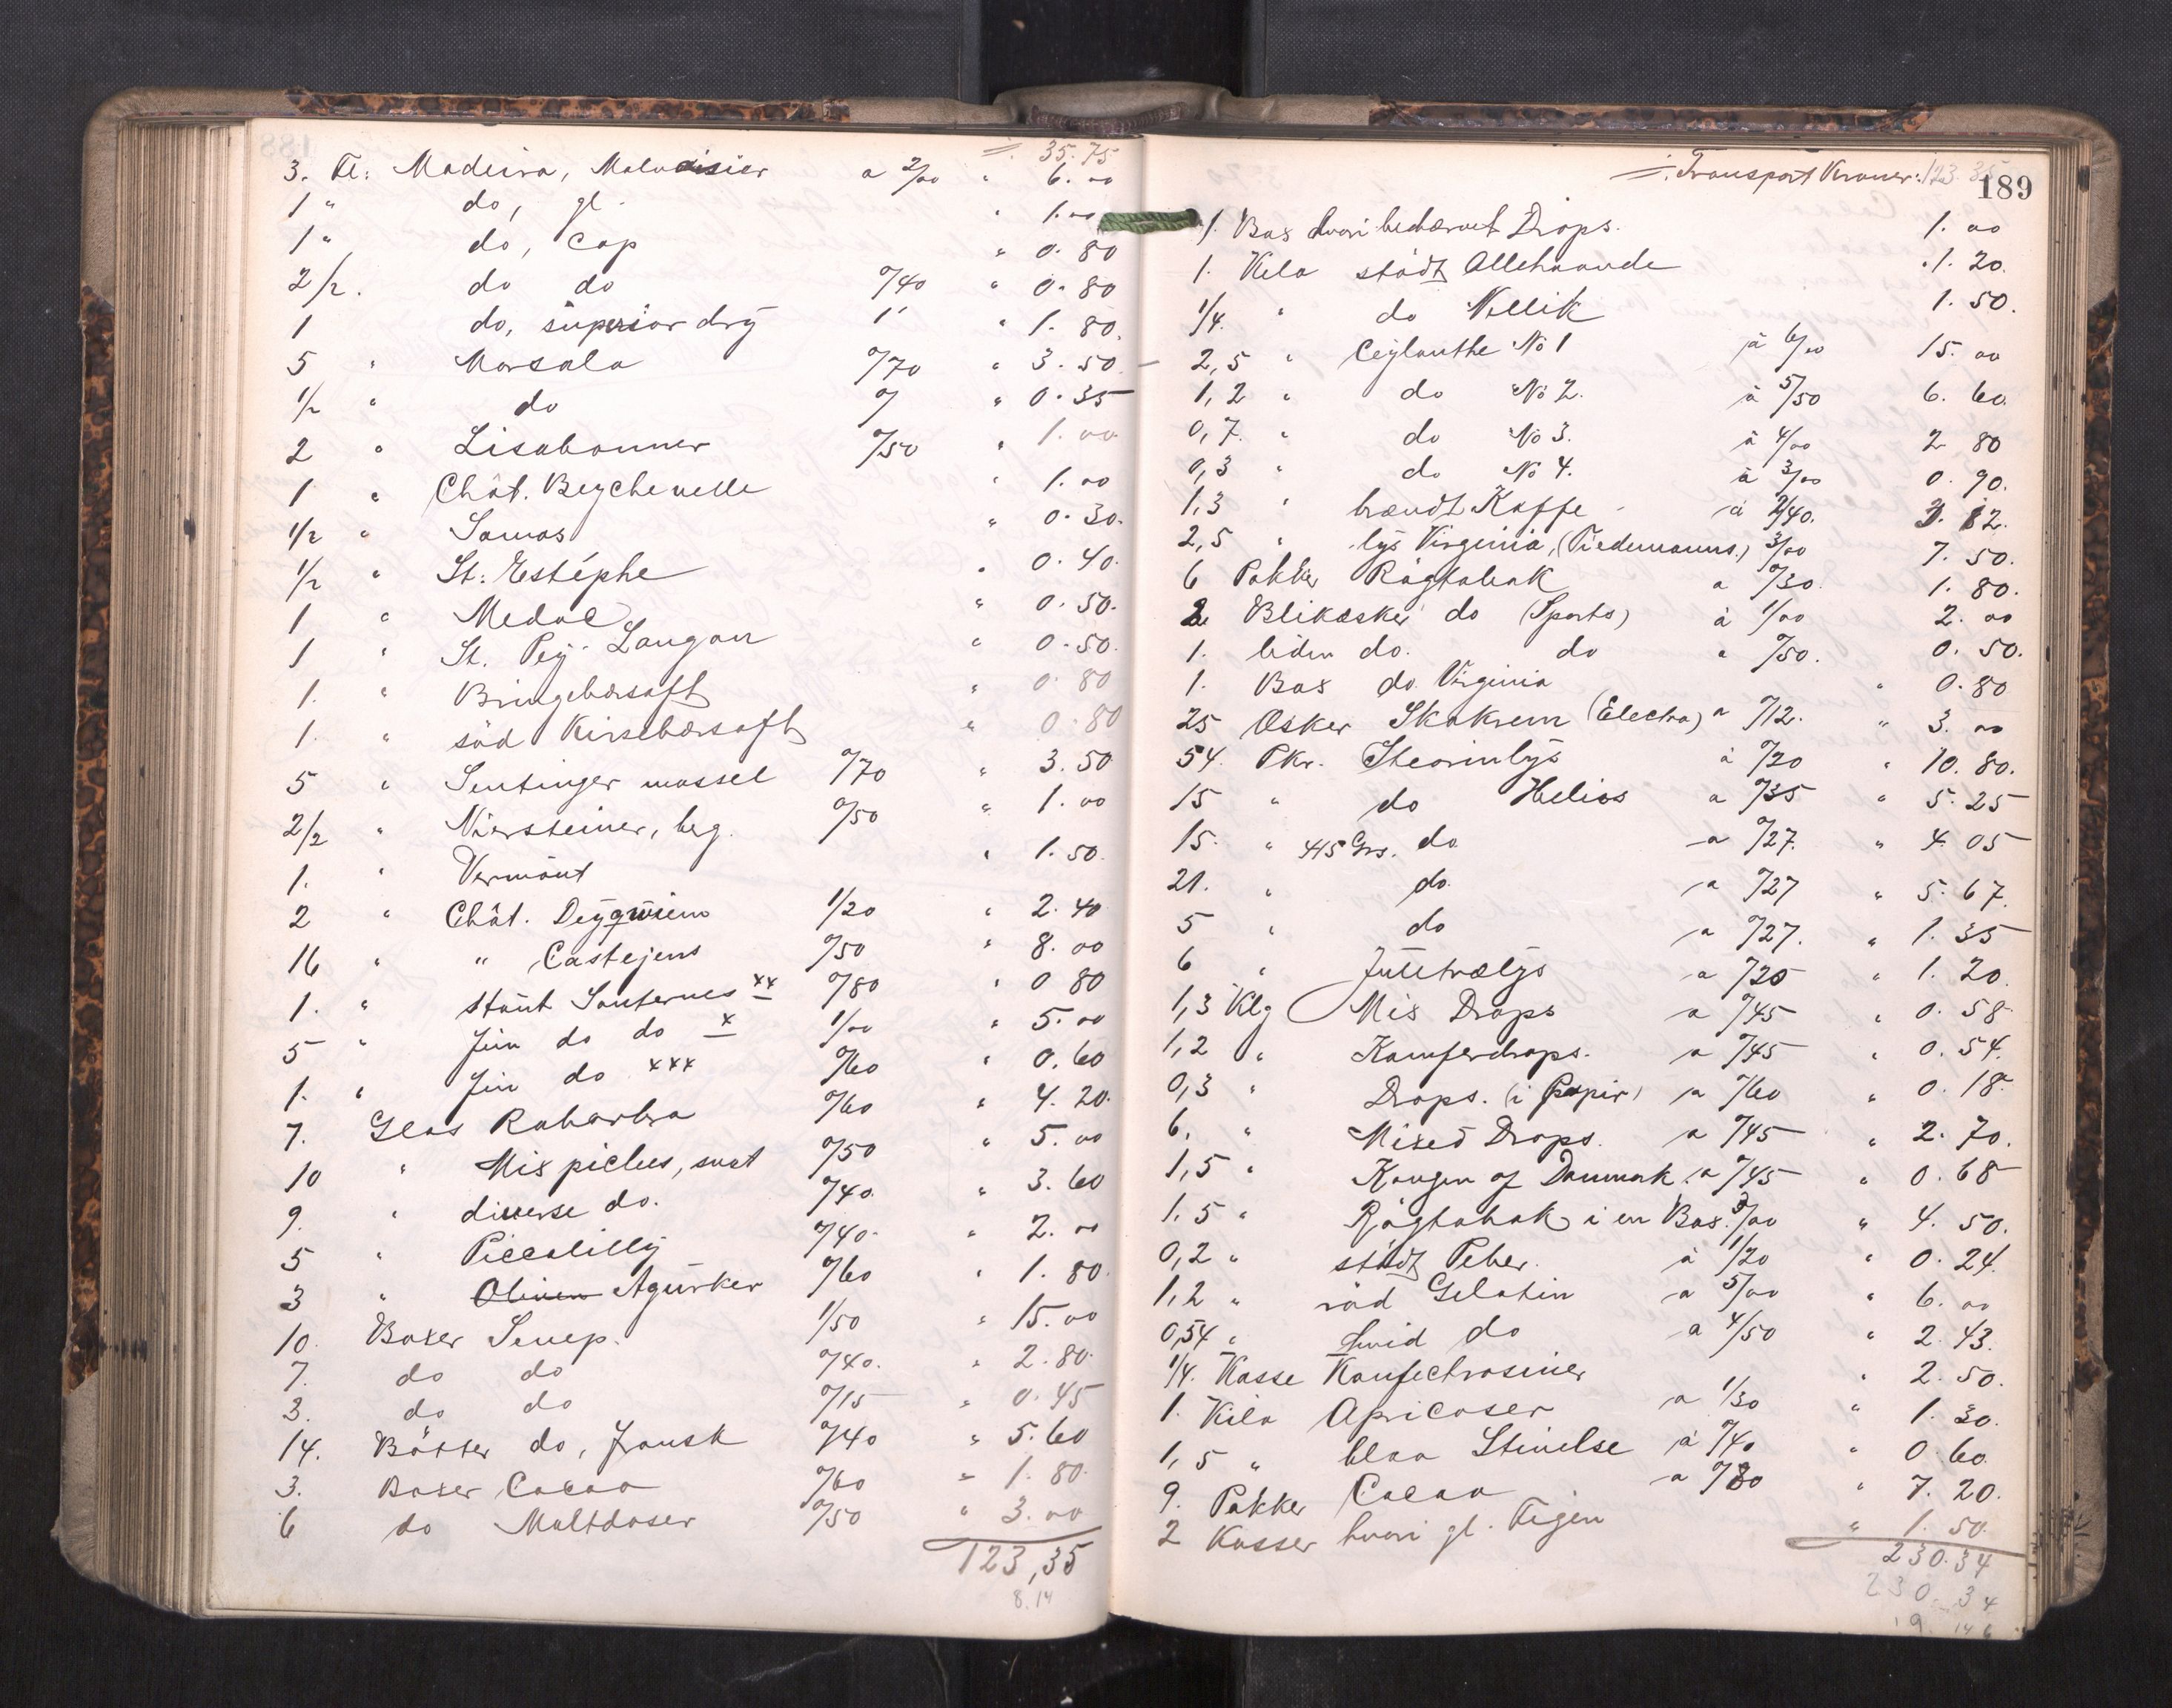 =. 35.75
3. Fl. Madeira, Malvoisier a 2/00 " 6.00
1 " do, gl. " 1.00
1 " do, Cap " 0.80
2/2. do do 0/40 " 0.80
1 do, superior dry 1' " 1.80.
5 " Marsala 0/70 " 3.50
1/2 " do 0/ " 0.35
2 " Lisabonner 0/50 " 1.00
1 " Chât. Beychevelle " 1.00
1/2 " Samos " 0.30.
1/2 " St. Estéphe " 0.40.
1 " Medoc " 0.50.
1 " St. Pey-Langon " 0.50.
1. " Bringebærsaft " 0.80
1. " söd Kirsebærsaft " 0.80
5 " Sentinger mossel 0/70 " 3.50
2/2 " Niersteiner, beg. 0/50 " 1.00
1. " Vermout " 1.50.
2 " Chât. Dÿquiem 1/20 " 2.40
16 " " Castejens 0/50 " 8.00
1. " Haut Sauternes xx 0/80 " 0 80
5 " fin do do x 1/00 " 5.00
1. " fin do xxx 0/60 " 0.60
7. Glas Rabarbra 0/60 " 4.20.
10 " Mix picles, suat 0/50 " 5.00
9. " diverse do. 0/40. " 3.60
5 " Piccalilly 0/40. " 2.00
3 " Oliven Agurker 0/60 " 1.80.
10. Boxer Senep. 1/50 " 15.00
7. do do 0/40. " 2.80.
3. do do 0/15 " 0.45
14. Bötter do, fransk 0/40 " 5.60
3. Boxer Cacao 0/60 " 1.80.
6 do Maltdaser 0/50 " 3.00
123,35
8.14
189
=. Transport Kroner: 123.35
1. Box hvori bedærvet Drops. 1.00
1. Kilo stödt Allehaande 1.20.
1/4. " do Nellik 1.50.
2,5 " Ceylonthe No 1 à 6/00 15.00
1,2 " do No 2. à 5/50 6.60.
0,7. " do No 3. à 4/00 2 80
0,3 " do No 4. à 3/00 0.90.
1,3 " brændt Kaffe à 2/40. 3.12.
2,5 " lys Virginia, (Tiedemanns.) 3/00 7.50.
6 Pakker Rögtobak a 0/30. 1.80.
2 Blikæsker do (Sports) à 1/00 2.00
1. liden do. do " 0/50. 0.50.
1. Box do. Virginia " 0.80
25 Æsker Skokrem (Electra) a 0/12. " 3.00
54. Pkr. Stearinlys à 0/20 " 10.80.
15 " do Helios a 0/35 " 5.25
15. " 415 Grs. do a 0/27. " 4.05
21. " do. a 0/27 " 5.67.
5 " do a 0/27. " 1.35
6 " Juletrælys a 0/20 " 1.20.
1,3 Klg Mix Drops a 0/45 " 0.58
1,2 " Kamferdrops. a 0/45 " 0.54.
0,3 " Drops. (i Papir) a 0/60 " 0.18.
6. " Mixed Drops. a 0/45 " 2.70.
1,5 " Kongen af Danmark a 0/45 " 0.68
1,5 " Rögtobak i en Box. 3/00 " 4.50.
0,2 " stödt Peber. à 1/20 " 0.24.
1,2 " röd Gelatin a 5/00 " 6.00
0,54 " hvid do a 4/50 " 2.43.
1/4. Kasse Konfectrosiner " 2.50.
1. Kilo Apricoser a 1/30 " 1.30.
1,5 " blaa Stivelse à 0/40 " 0.60
9. Pakker Cacao a 0/80 " 7.20.
2 Kasser hvori gl. Figen " 1.50.
230.34
230.34